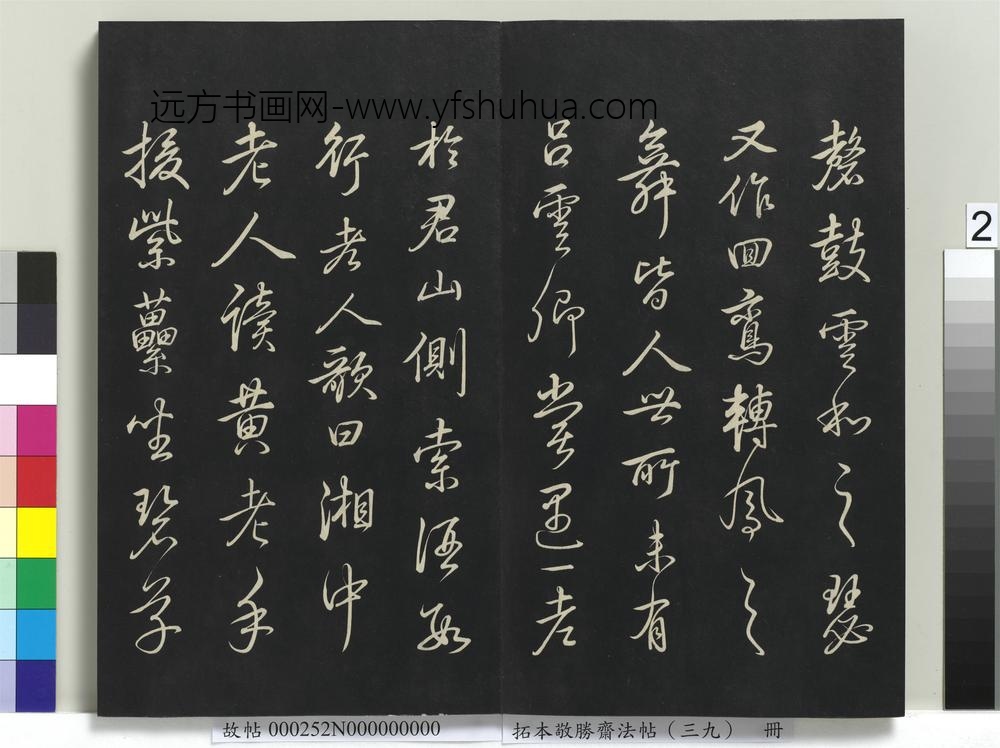 远方书画网-www.yfshuhua.com
磬鼓雲和之瑟
又作回鸞轉鳳之
舞皆人世所未有
吕雲卿嘗遇一老
於君山側索酒數
行老人歌曰湘中
老人讀黄老手
援紫藟坐碧草
2
故帖 000252N000000000
拓本敬勝齋法帖（三九） 冊